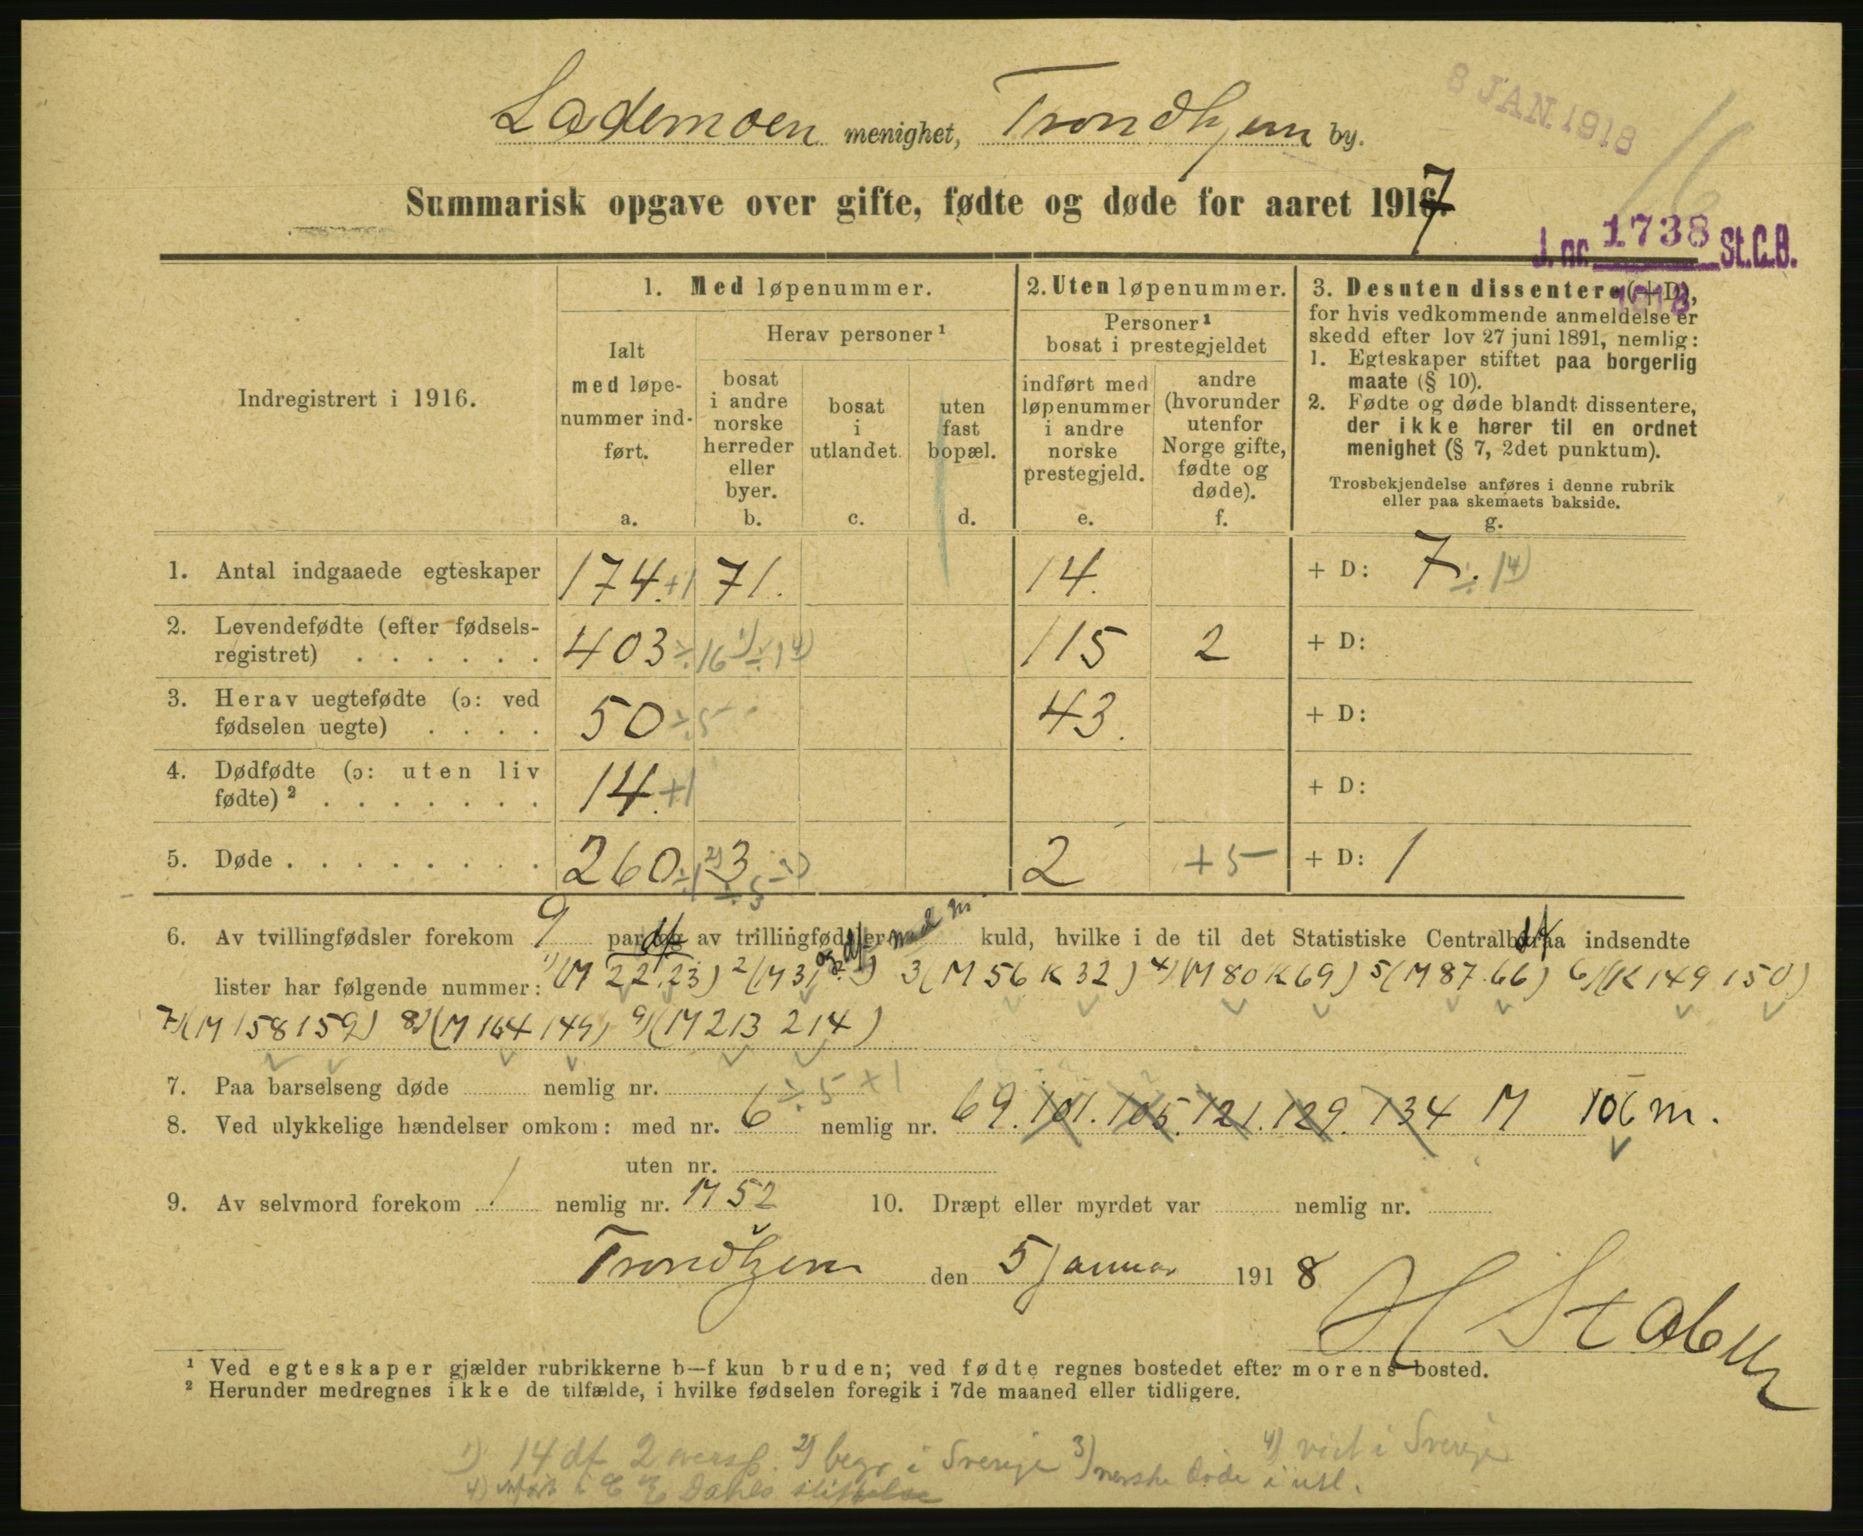 8 JAN. 1918
16
Lademoen menighet, Trondhjem by.
Summarisk opgave over gifte, fødte og døde for aaret 1917
J. nr. 1738 St.C.B.
1918
Indregistrert i 1916.
1. Med løpenummer.
Ialt med løpe-nummer ind-ført.
a.
Herav personer ¹
bosat i andre norske herreder eller byer.
b.
bosat i utlandet.
c.
uten fast bopæl.
d.
2. Uten løpenummer.
Personer ¹ bosat i prestegjeldet
indført med løpenummer i andre norske prestegjeld.
e.
andre (hvorunder utenfor Norge gifte, fødte og døde).
f.
3. Desuten dissentere (+ D),
for hvis vedkommende anmeldelse er
skedd efter lov 27 juni 1891, nemlig:
1. Egteskaper stiftet paa borgerlig
maate (§ 10).
2. Fødte og døde blandt dissentere,
der ikke hører til en ordnet
menighet (§ 7, 2det punktum).
Trosbekjendelse anføres i denne rubrik
eller paa skemaets bakside.
g.
1. Antal indgaaede egteskaper 174. +1 71. 14. + D: 7. ÷ 1 4)
2. Levendefødte (efter fødsels-
registret) . . . . . . 403 ÷ 16 1) ÷ 1 4) 115 2 + D:
3. Herav uegtefødte (ɔ: ved
fødselen uegte) . . . . 50 ÷ 5 43. + D:
4. Dødfødte (ɔ: uten liv
fødte) ² . . . . . . . 14. +1 + D:
5. Døde . . . . . . . . 260 ÷ 1 2) 3 2 + 5 + D: 1
÷ 5
6. Av tvillingfødsler forekom 9 par og av trillingfødsler kuld, hvilke i de til det Statistiske Centralbyraa indsendte
lister har følgende nummer: 1) (M 22. 23) 2 (M 31 3 (M 56 K 32) 4) (M 80 K 69) 5 (M 87. 66) 6) (K 149 150)
7) (M 158 159) 8) (M 164 149) 9) (M 213 214)
7. Paa barselseng døde nemlig nr.
÷ 5 + 1
8. Ved ulykkelige hændelser omkom: med nr. 6 nemlig nr. 69. 101. 105. 121. 129. 134 M 106 m.
uten nr.
9. Av selvmord forekom 1 nemlig nr. M 52 10. Dræpt eller myrdet var nemlig nr.
Trondhjem den 5 Januar 1918
H Stabell
¹ Ved egteskaper gjælder rubrikkerne b—f kun bruden; ved fødte regnes bostedet efter morens bosted.
² Herunder medregnes ikke de tilfælde, i hvilke fødselen foregik i 7de maaned eller tidligere.
1) 14 df 2 oversp. 2) begr i Sverige 3) norske døde i utl. 4) viet i Sverige
4) indført i E E Dahls stiftelse